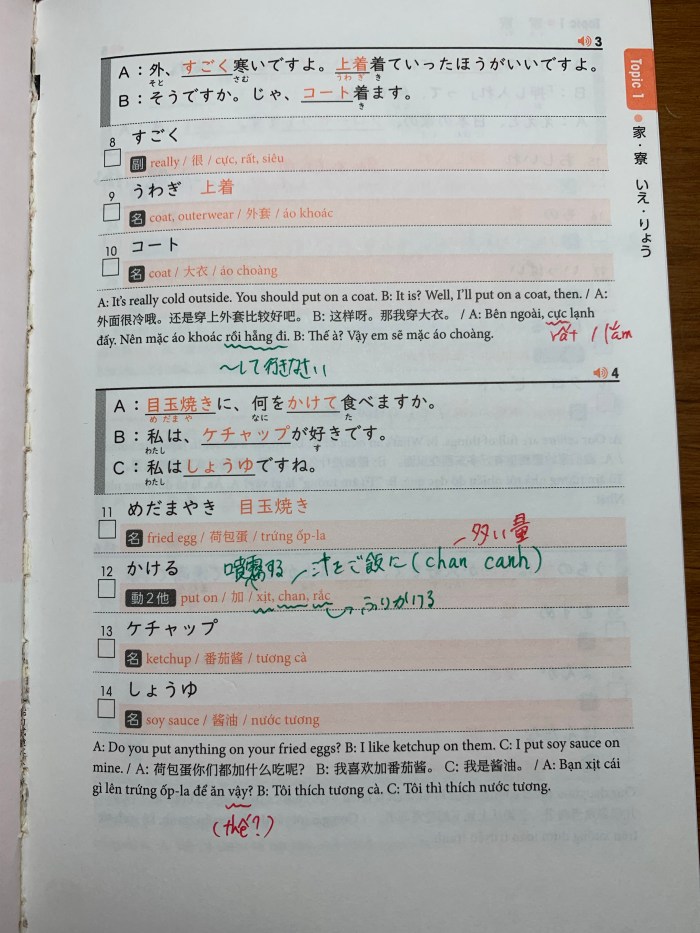 3
A：外、すごく寒いですよ。上着着ていったほうがいいですよ。
そと さむ うわぎ き
B：そうですか。じゃ、コート着ます。
き
8 すごく
副 really / 很 / cực, rất, siêu
9 うわぎ 上着
名 coat, outerwear / 外套 / áo khoác
10 コート
名 coat / 大衣 / áo choàng
A: It's really cold outside. You should put on a coat. B: It is? Well, I'll put on a coat, then. / A:
外面很冷哦。还是穿上外套比较好吧。 B: 这样呀。那我穿大衣。 / A: Bên ngoài, cực lạnh
đấy. Nên mặc áo khoác rồi hẵng đi. B: Thế à? Vậy em sẽ mặc áo choàng.
rất / lắm
〜して行きなさい
4
A：目玉焼きに、何をかけて食べますか。
めだまや なに た
B：私は、ケチャップが好きです。
わたし す
C：私はしょうゆですね。
わたし
11 めだまやき 目玉焼き
名 fried egg / 荷包蛋 / trứng ốp-la
多い量
12 かける 噴霧する 汁をご飯に (chan canh)
動2他 put on / 加 / xịt, chan, rắc ふりかける
13 ケチャップ
名 ketchup / 番茄酱 / tương cà
14 しょうゆ
名 soy sauce / 酱油 / nước tương
A: Do you put anything on your fried eggs? B: I like ketchup on them. C: I put soy sauce on
mine. / A: 荷包蛋你们都加什么吃呢? B: 我喜欢加番茄酱。 C: 我是酱油。 / A: Bạn xịt cái
gì lên trứng ốp-la để ăn vậy? B: Tôi thích tương cà. C: Tôi thì thích nước tương.
(thế?)
Topic 1
家・寮 いえ・りょう